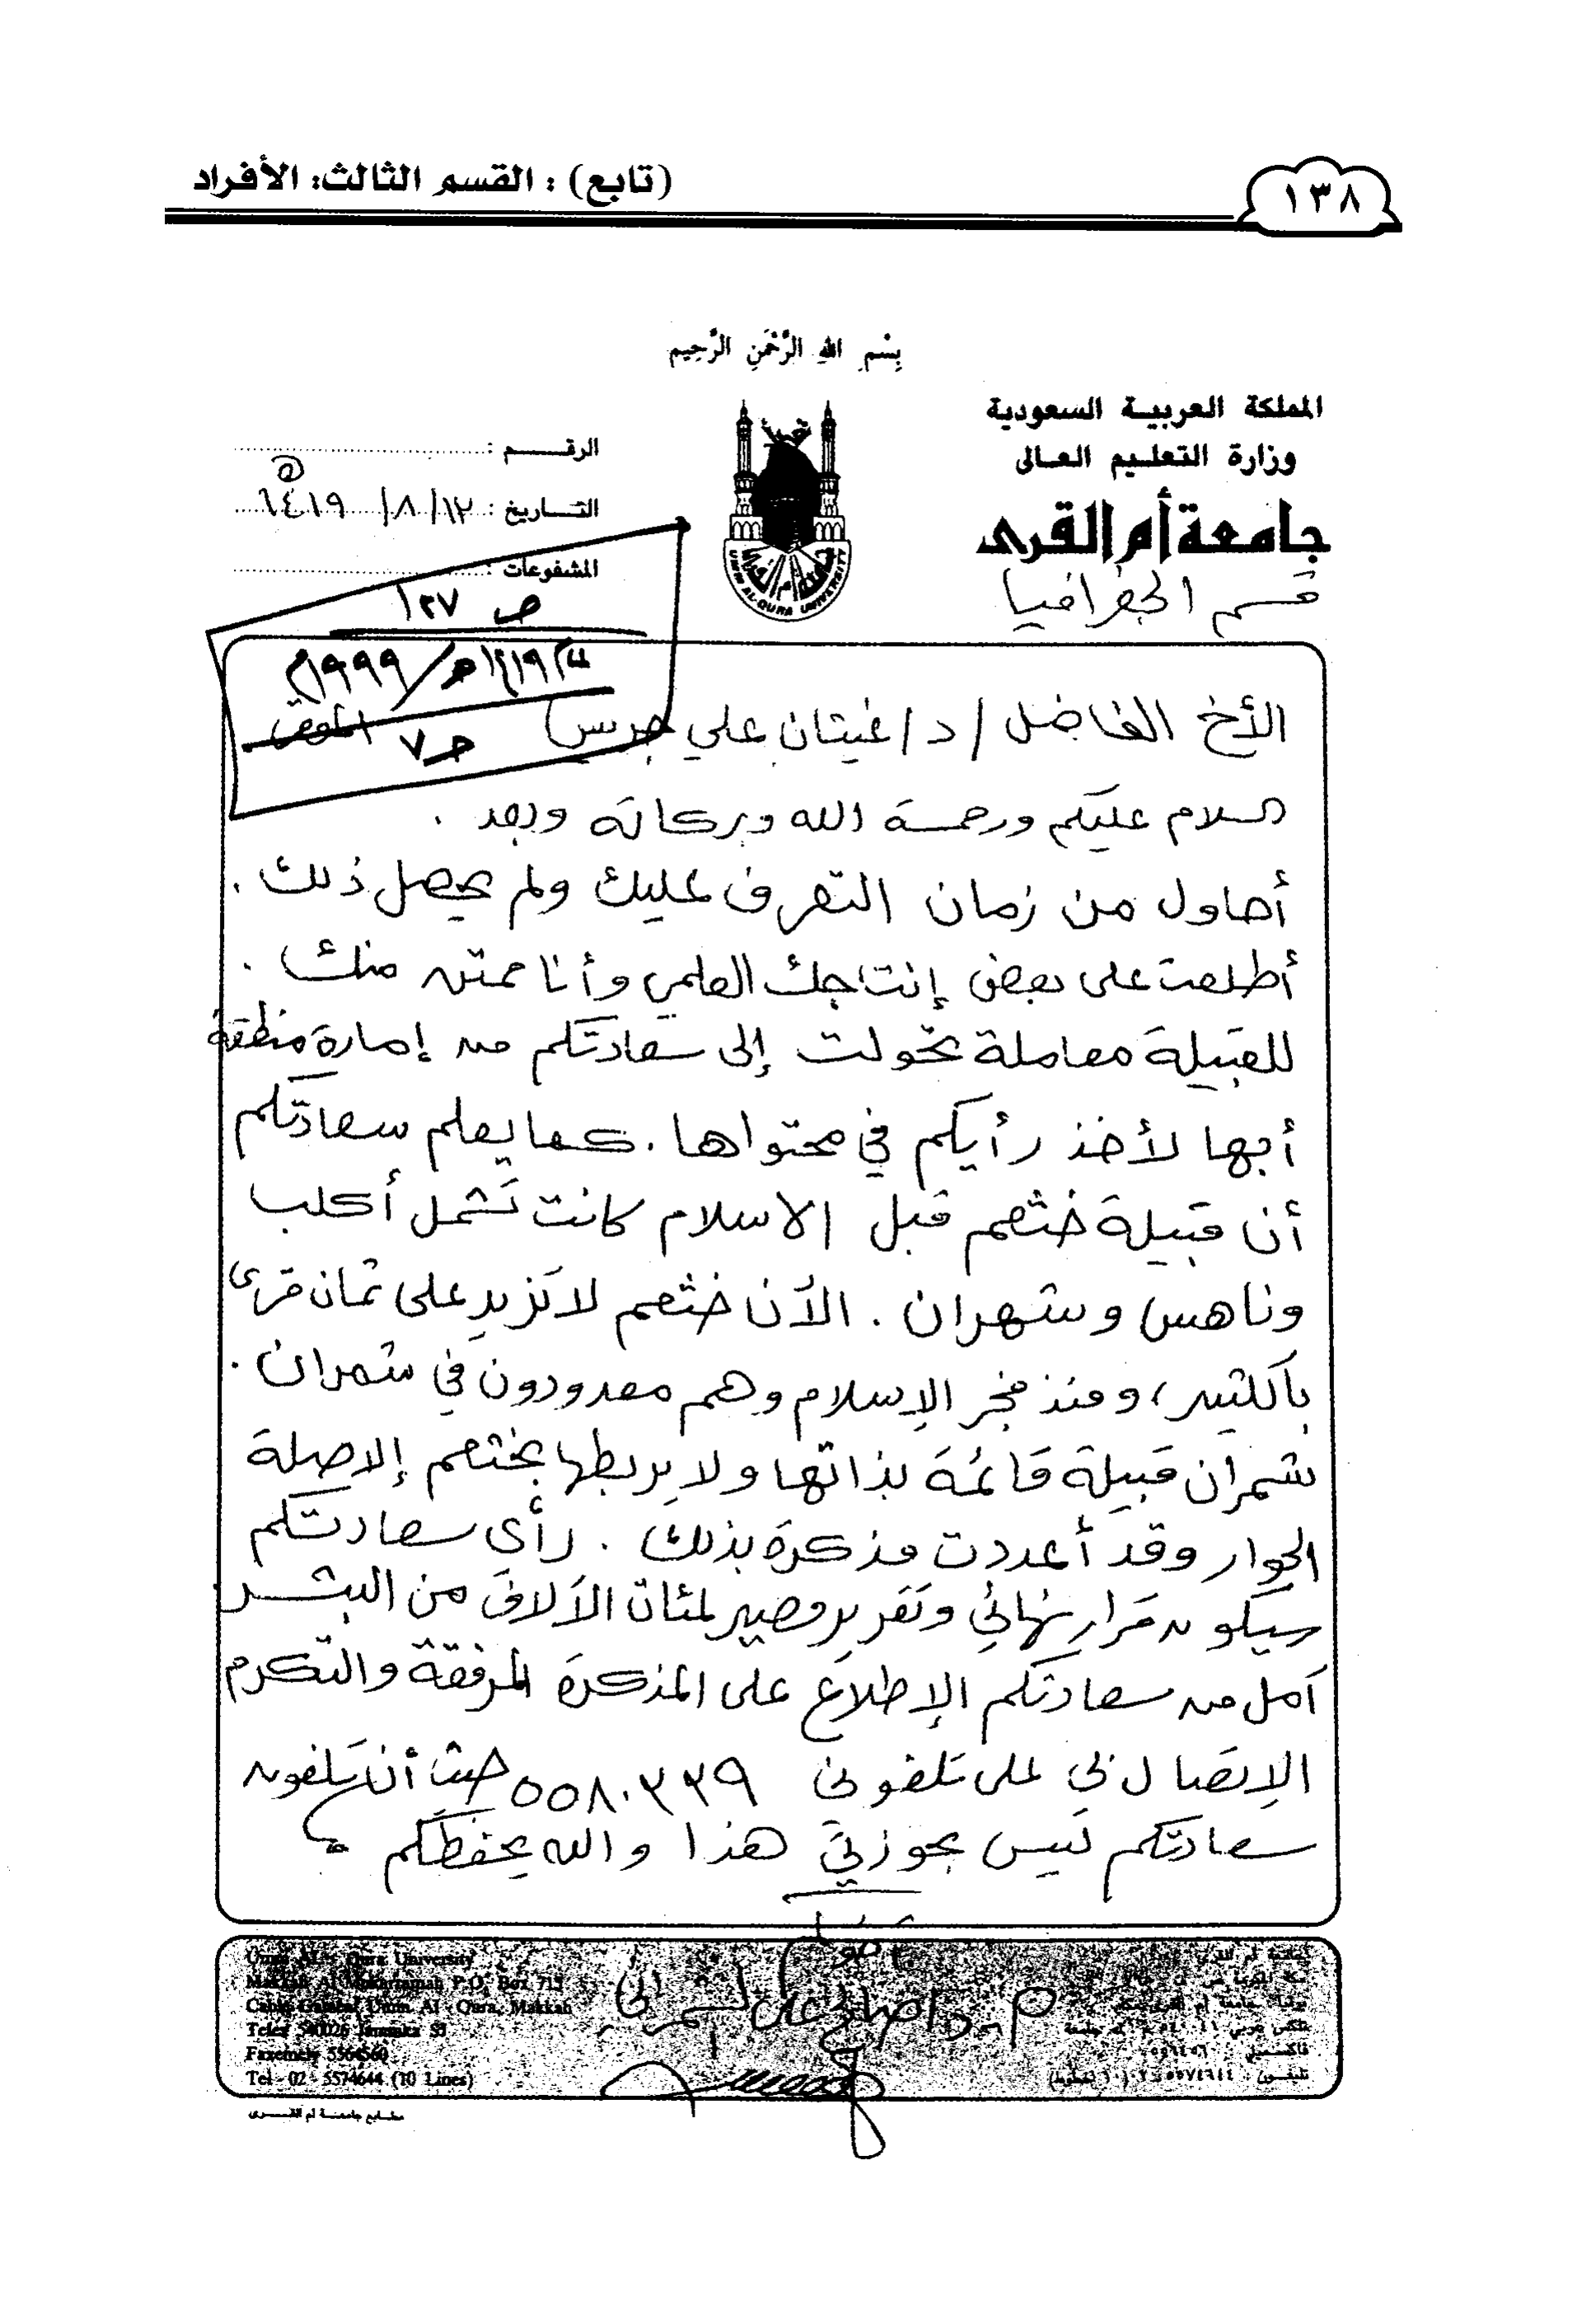 ١٣٨
(تابع) : القسم الثالث: الأفراد
بِسْمِ اللهِ الرَّحْمَنِ الرَّحِيمِ
المملكة العربية السعودية
وزارة التعليم العالى
جامعة أم القرى
قسم الجغرافيا
الرقم :
التاريخ : ١٢/٨/١٤١٩ هـ
المشفوعات :
ص ١٢٧
١٤١٩هـ/١٩٩٩م
ح٧
UMM AL-QURA UNIVERSITY
الأخ الفاضل / د/ غيثان علي جريس
السلام عليكم ورحمة الله وبركاته وبعد .
أحاول من زمان التعرف عليك ولم يحصل ذلك .
أطلعت على بعض إنتاجك العلمي وأنا ممتن منك .
للقبيلة معاملة تحولت إلى سعادتكم من إمارة منطقة
أبها لأخذ رأيكم في محتواها . كما يعلم سعادتكم
أن قبيلة خثعم قبل الاسلام كانت تشمل أكلب
وناهس وشهران . الآن خثعم لا تزيد على ثمان قرى
بالكثير ، ومنذ فجر الإسلام وهم معدودون في شمران .
شمران قبيلة قائمة بذاتها ولا يربطها بخثعم إلا صلة
الجوار وقد أعددت مذكرة بذلك . رأى سعادتكم
سيكون قرار نهائي وتقرير مصير لمئات الآلاف من البشر
آمل من سعادتكم الإطلاع على المذكرة المرفقة والتكرم
الإتصال بي على تلفوني ٥٥٨٠٣٣٩ حيث أن تلفون
سعادتكم ليس بحوزتي هذا والله يحفظكم
أخوكم
د/صالح علي الشمراني
Umm Al - Qura University
Makkah Al Mukarramah P.O. Box 715
Cable Gameat Umm Al - Qura, Makkah
Telex 540026 Jammka SJ
Faxemely 5564560
Tel - 02 - 5574644 (10 Lines)
جامعة أم القرى
تليفون : ٥٥٧٤٦٤٤ - ٠٢ (١٠ خطوط)
مطابع جامعة أم القرى